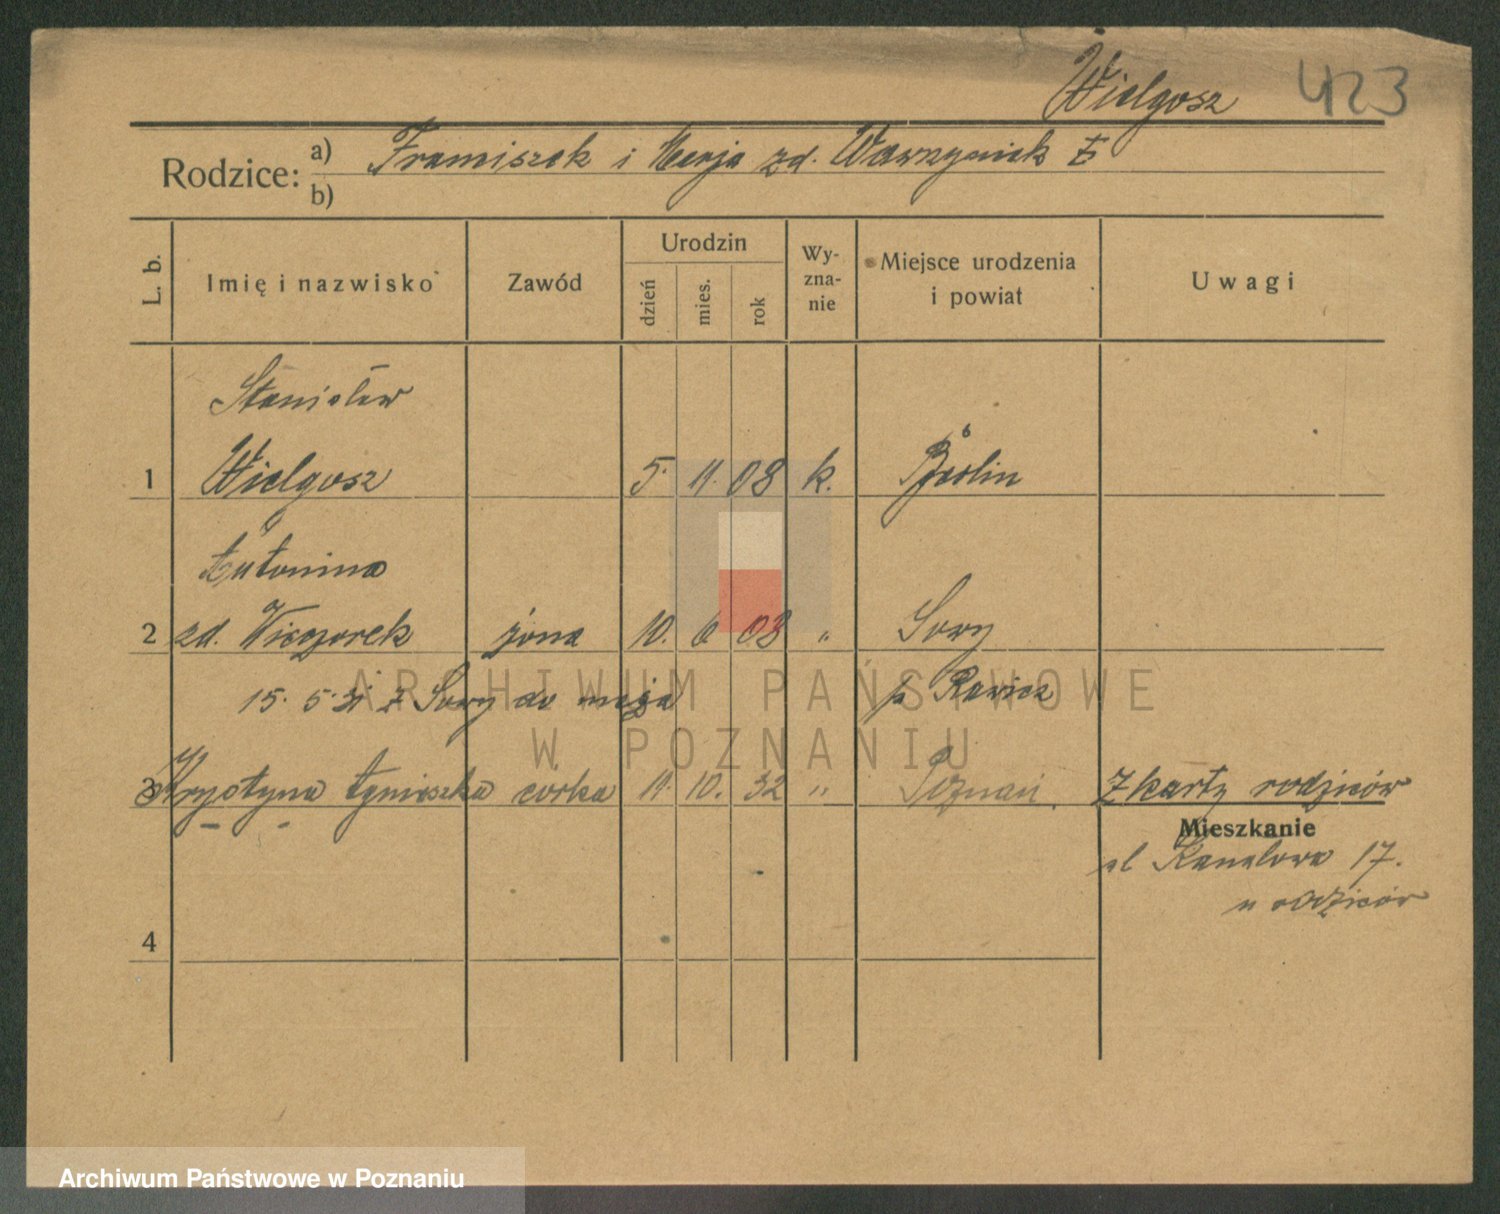 Wielgosz 423
Rodzice: a) Franciszek i Marja zd. Wawrzyniak
b)
L. b. Imię i nazwisko Zawód Urodzin dzień mies. rok Wy-zna-nie Miejsce urodzenia i powiat Uwagi
Stanisław
1 Wielgosz 5. 11. 08 k. Berlin
Antonina
2 zd. Wieczorek żona 10. 6 03 " Sowy
15. 5. 31 z Sowy do męża p Rawicz
3 Krystyna Agnieszka córka 11. 10. 32 " Poznań. Z karty rodziców
Mieszkanie
ul Kanałowa 17.
u rodziców
4
ARCHIWUM PAŃSTWOWE
W POZNANIU
Archiwum Państwowe w Poznaniu